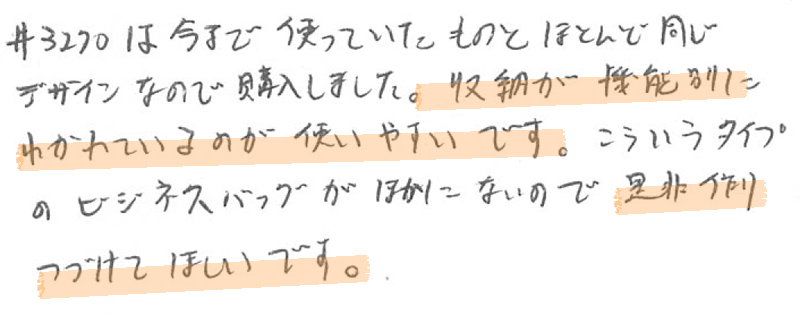 #3270は今まで使っていたものとほとんど同じ
デザインなので購入しました。収納が機能別に
わかれているのが使いやすいです。こういうタイプ
のビジネスバッグがほかにないので是非作り
つづけてほしいです。